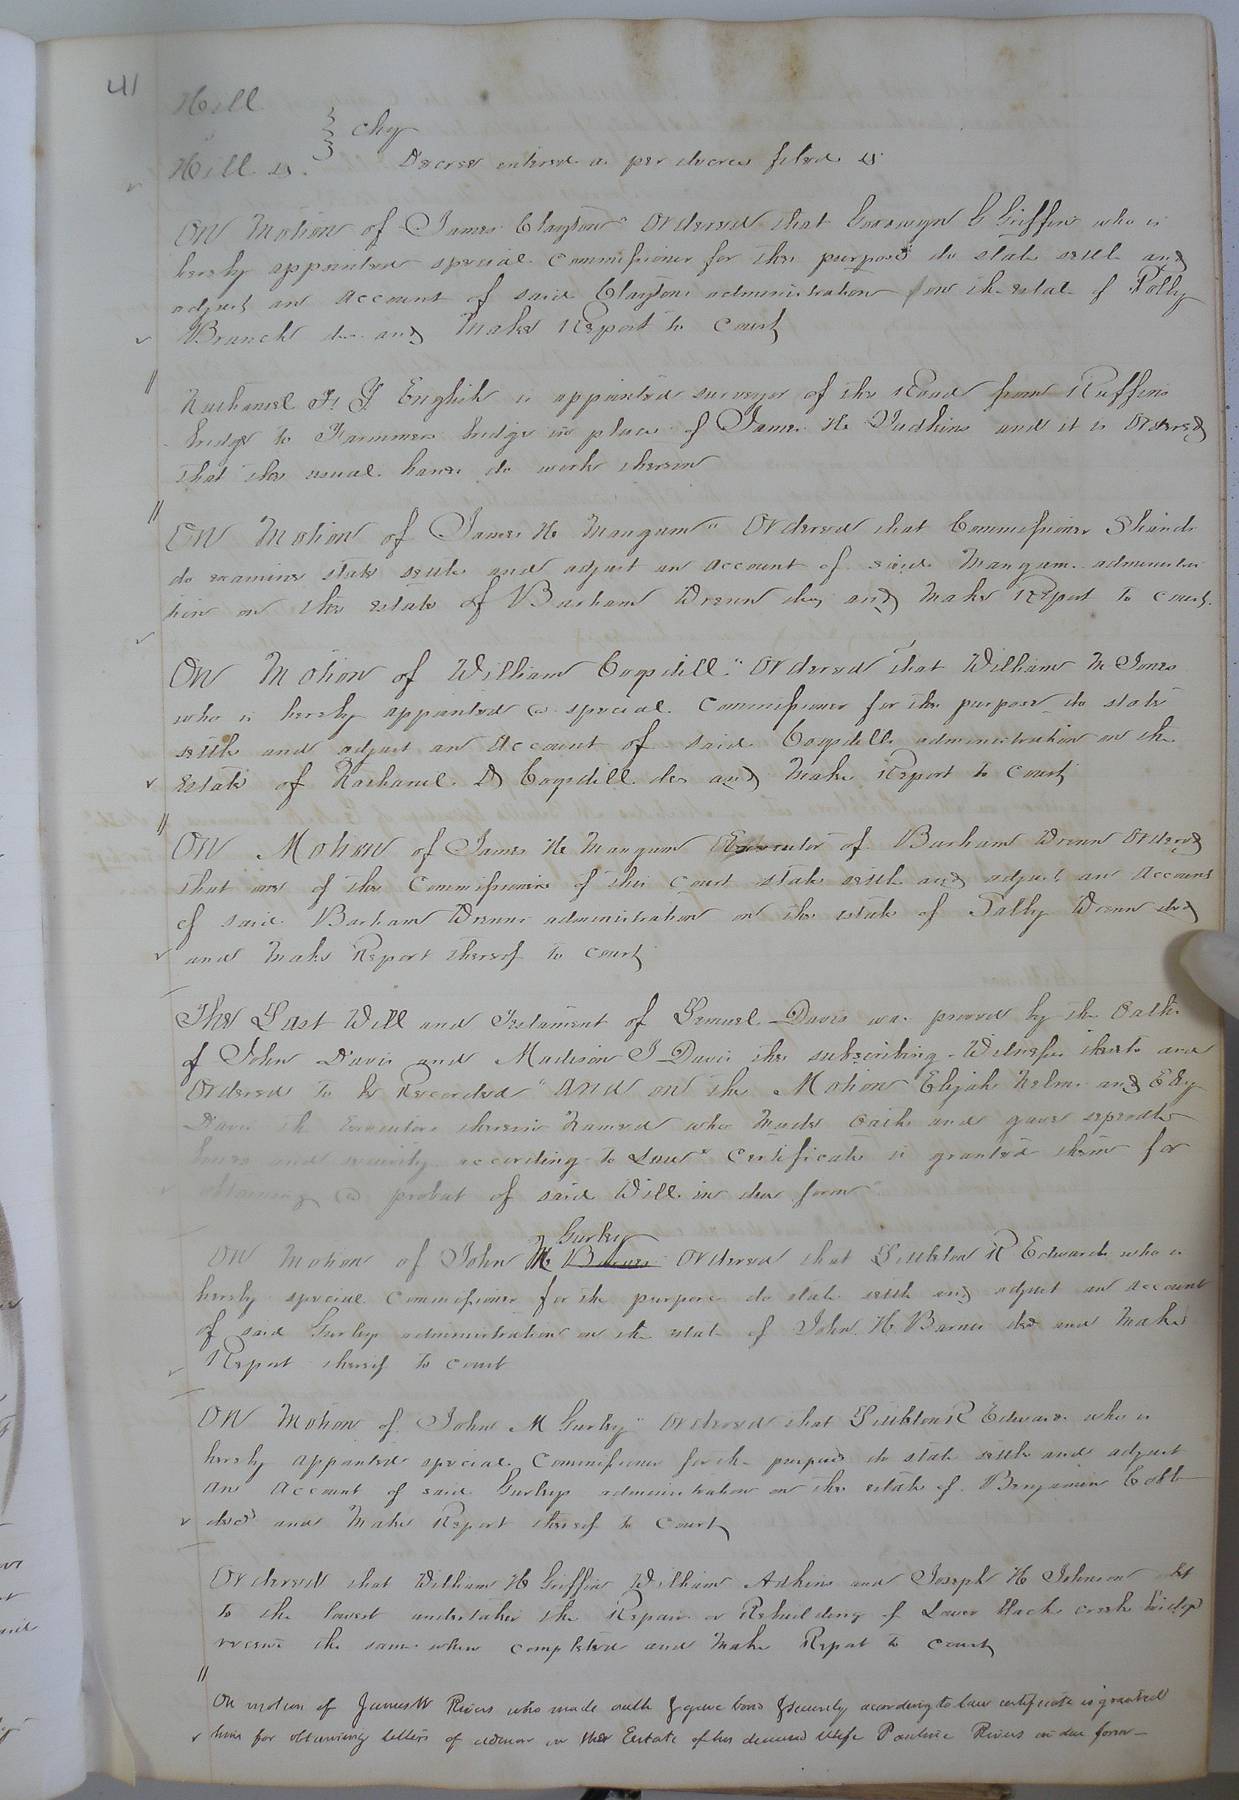 41
Hill
" } chy
Hill &. Decree entered as per decree filed &
On Motion of James Clayton" Ordered that G Griffin who is
hereby appointed special Commissioner for the purpose do state settle and
adjust an account of said Claytons administration on the estate of Polly
Branch dec and Make Report to Court
Nathaniel F. English is appointed surveyor of the Road from Ruffins
bridge to bridge in place of James H Judkins and it is Ordered
that the usual hands do work thereon
On Motion of James H Mangum" Ordered that Commissioner Shands
do examine state settle and adjust an account of said Mangums administra
tion on the estate of Barham Drenn dec and Make Report to Court.
On Motion of William Cogsdill" Ordered that William M Jones
who is hereby appointed a special Commissioner for the purpose do state
settle and adjust an account of said Cogsdills administration on the
Estate of Nathaniel D Cogsdill dec and Make Report to Court
On Motion of James H Mangum Executor of Barham Drenn Ordered
that one of the Commissioners of this Court state settle and adjust an account
of said Barham Drenns administration on the estate of Sally Drenn decd
and Make Report thereof to Court
The Last Will and Testament of Lemuel Davis was proved by the Oaths
of John Davis and Madison J Davis the subscribing Witnesses thereto and
Ordered to be Recorded" And on the Motion Elijah Helms and
Davis the Executors therein Named who Made Oath and gave seperate
bonds and security according to Law" Certificate is granted them for
obtaining a probat of said Will in due form"
On Motion of John M Gurley Barnes Ordered that Littleton R Edwards who is
hereby special Commissioner for the purpose do state settle and adjust an account
of said Gurleys administration on the estate of John H Barnes decd and Make
Report thereof to Court
On Motion of John M Gurley" Ordered that Littleton R Edwards who is
hereby appointed special Commissioner for the purpose do state settle and adjust
an account of said Gurleys administration on the estate of Benjamin Cobb
decd and Make Report thereof to Court
Ordered that William H Griffin William Adkins and Joseph H Johnson let
to the lowest undertaker the Repair or Rebuilding of Lower Black creek bridge
receive the same when completed and Make Report to Court
On motion of James W Rivers who made oath & gave bond & security according to law certificate is granted
him for obtaining letters of admon on the Estate of his deceased Wife Pauline Rivers in due form —